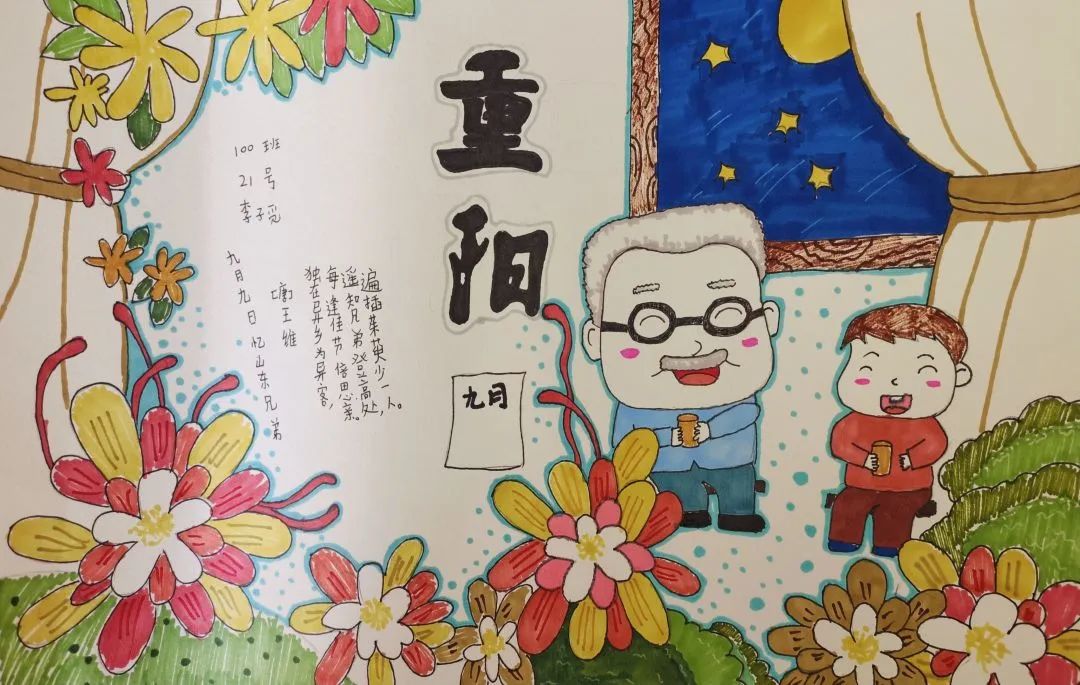 重阳
九月
100 班
21 号
李子觅
九月九日忆山东兄弟
唐 王维
独在异乡为异客，
每逢佳节倍思亲。
遥知兄弟登高处，
遍插茱萸少一人。